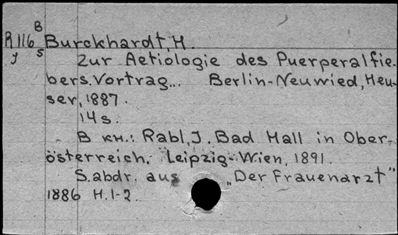 B
R 116 Burckhardt, H.
y s
Zur Aetiologie des Puerperalfie-
bers. Vortrag... Berlin-Neuwied, Heu-
ser, 1887.
14 s.
В кн.: Rabl, J. Bad Hall in Ober-
österreich. Leipzig-Wien, 1891.
S. abdr. aus „Der Frauenarzt"
1886 H. 1-2.